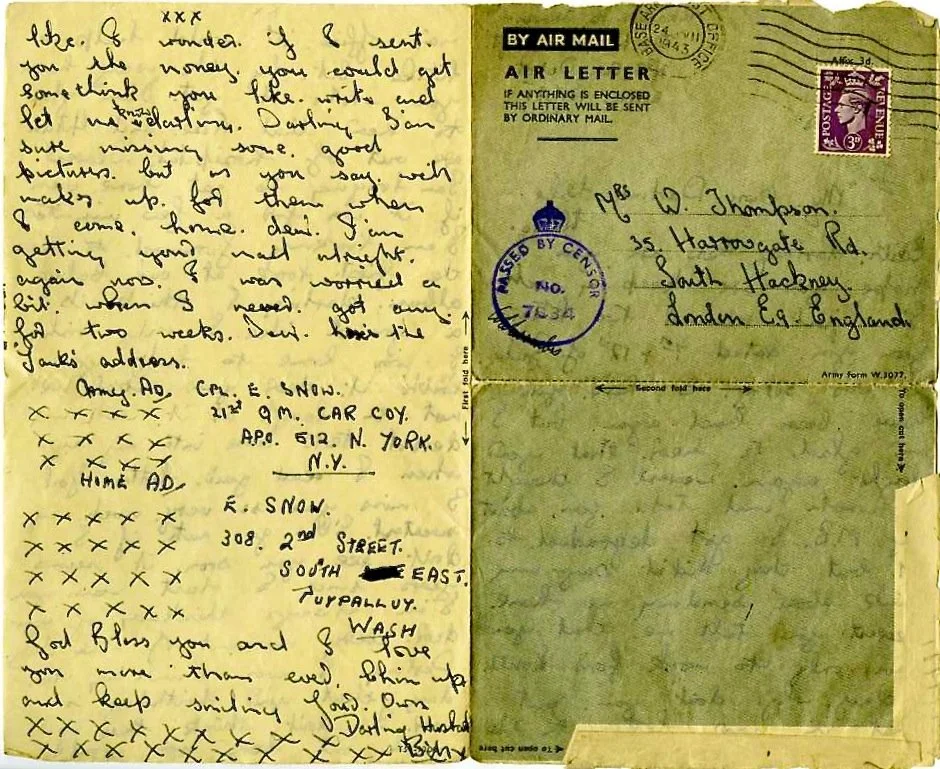 xxx
like. I wonder. if I sent.
you the money. you could get
somethink you like. write and
let me know darling. Darling I am
sure missing some. good
pictures. but as you say. will
make up. for them when
I come. home. dear. I am
getting your mail alright.
again now. I was worried a
bit. when I never. got any.
for two weeks. Dear. the
Yanks address.
Army. AD. CPL. E. SNOW.
X X X X 21st QM. CAR COY.
X X X X APO. 512. N. YORK.
X X X X N.Y.
HOME AD
E. SNOW.
X X X X X
308. 2nd STREET.
X X X X X
SOUTH EAST.
X X X X X
PUYPALLUY.
X X X X X
WASH
God Bless you and I love
you more than ever. Chin up
and keep smiling Your. Own
Darling Husband
X X X X X X X X X
X X X X X X X X X X
BY AIR MAIL
AIR LETTER
IF ANYTHING IS ENCLOSED
THIS LETTER WILL BE SENT
BY ORDINARY MAIL.
BASE ARMY POST OFFICE
24
1943
Affix 3d.
POSTAGE REVENUE
3D
PASSED BY CENSOR
NO.
7834
Mrs W. Thompson.
35. Harrowgate Rd.
South Hackney.
London E9. England
Army Form W.3077.
First fold here
Second fold here
To open cut here
To open cut here